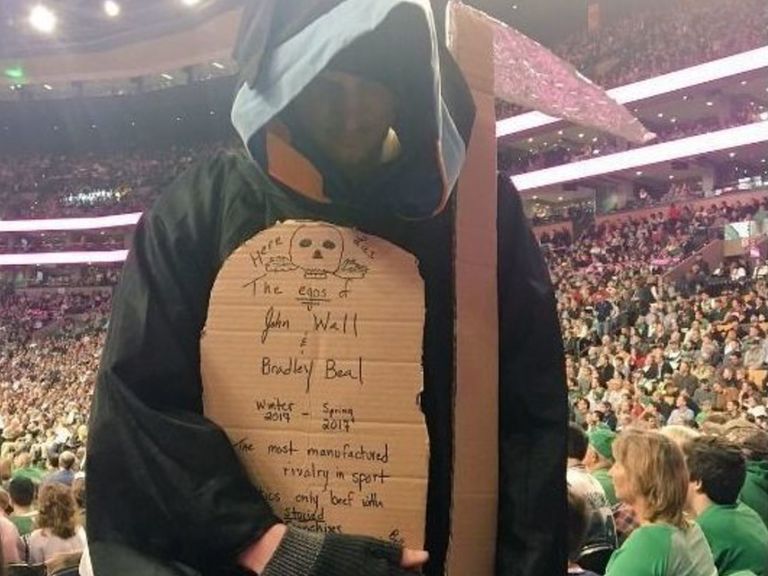 Here Lies
The egos of
John Wall
&
Bradley Beal
Winter 2017 - Spring 2017
The most manufactured
rivalry in sport
only beef with
storied